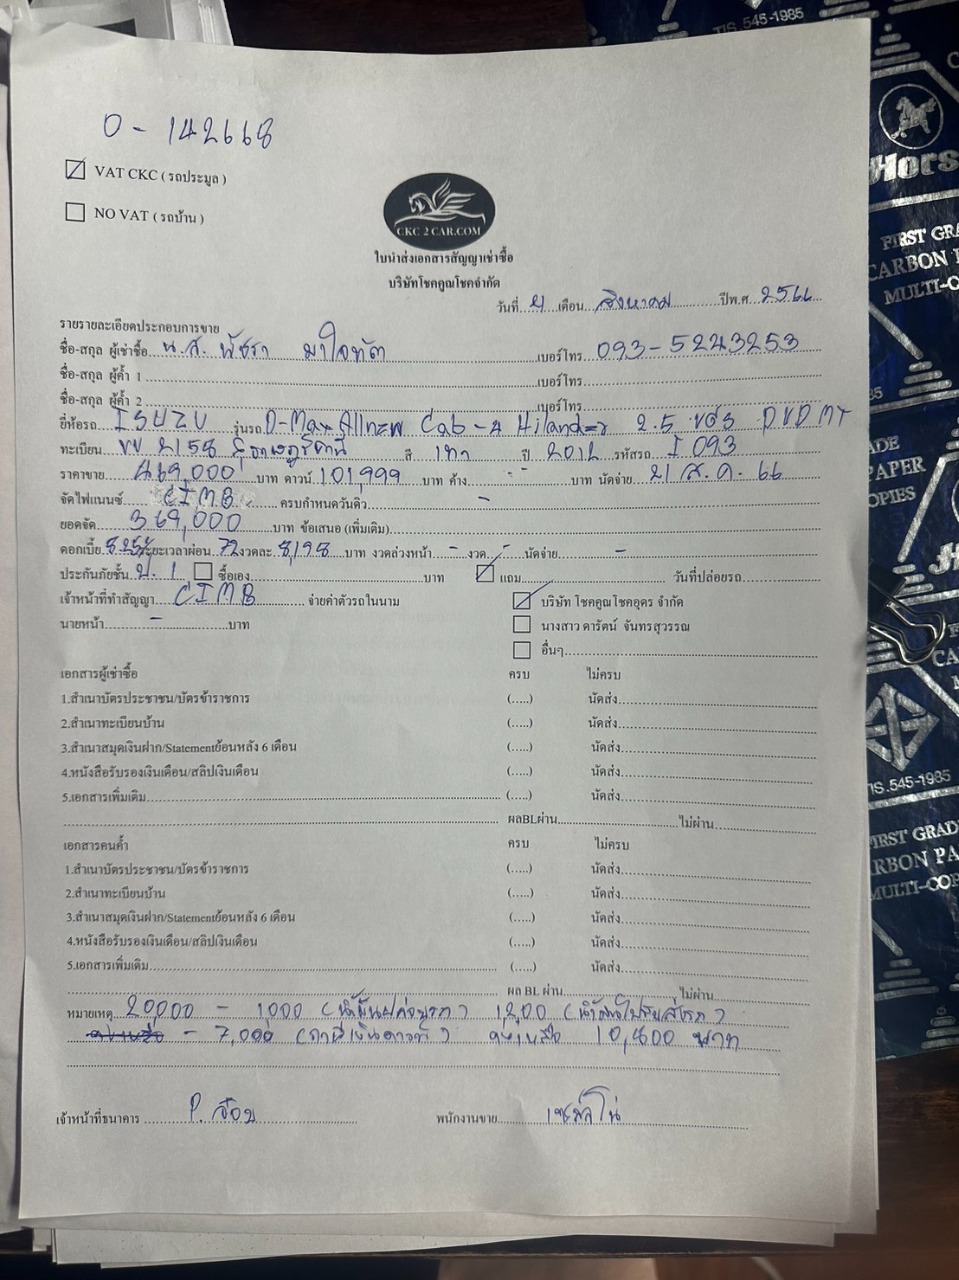 0 - 142668
VAT CKC ( รถประมูล )
NO VAT ( รถบ้าน )
CKC 2 CAR.COM
ใบนำส่งเอกสารสัญญาเช่าซื้อ
บริษัทโชคคูณโชคจำกัด
วันที่ 21 เดือน สิงหาคม ปีพ.ศ. 2566
รายรายละเอียดประกอบการขาย
ชื่อ-สกุล ผู้เช่าซื้อ น.ส. พัชรา มาใจทัด เบอร์โทร 093-5243253
ชื่อ-สกุล ผู้ค้ำ 1 เบอร์โทร
ชื่อ-สกุล ผู้ค้ำ 2 เบอร์โทร
ยี่ห้อรถ ISUZU รุ่นรถ D-Max Allnew Cab-4 Hilander 2.5 VGS DVD MT
ทะเบียน 2158 สุราษฎร์ธานี สี เทา ปี 2012 รหัสรถ I 093
ราคาขาย 469,000 บาท ดาวน์ 101,999 บาท ค้าง - บาท นัดจ่าย 21 ส.ค. 66
จัดไฟแนนซ์ CIMB ครบกำหนดวันดิว -
ยอดจัด 369,000 บาท ข้อเสนอ (เพิ่มเติม)
ดอกเบี้ย 8.25% ระยะเวลาผ่อน 72 งวดละ 8,198 บาท งวดล่วงหน้า - งวด - นัดจ่าย -
ประกันภัยชั้น ป.1 ซื้อเอง บาท แถม วันที่ปล่อยรถ
เจ้าหน้าที่ทำสัญญา CIMB จ่ายค่าตัวรถในนาม บริษัท โชคคูณโชคอุดร จำกัด
นายหน้า - บาท นางสาว ดารัตน์ จันทรสุวรรณ
อื่นๆ
เอกสารผู้เช่าซื้อ ครบ ไม่ครบ
1.สำเนาบัตรประชาชน/บัตรข้าราชการ (.....) นัดส่ง
2.สำเนาทะเบียนบ้าน (.....) นัดส่ง
3.สำเนาสมุดเงินฝาก/Statementย้อนหลัง 6 เดือน (.....) นัดส่ง
4.หนังสือรับรองเงินเดือน/สลิปเงินเดือน (.....) นัดส่ง
5.เอกสารเพิ่มเติม (.....) นัดส่ง
ผลBLผ่าน ไม่ผ่าน
เอกสารคนค้ำ ครบ ไม่ครบ
1.สำเนาบัตรประชาชน/บัตรข้าราชการ (.....) นัดส่ง
2.สำเนาทะเบียนบ้าน (.....) นัดส่ง
3.สำเนาสมุดเงินฝาก/Statementย้อนหลัง 6 เดือน (.....) นัดส่ง
4.หนังสือรับรองเงินเดือน/สลิปเงินเดือน (.....) นัดส่ง
5.เอกสารเพิ่มเติม (.....) นัดส่ง
ผล BL ผ่าน ไม่ผ่าน
หมายเหตุ 20,000 - 1,000
- 7,000 คงเหลือ 10,800 บาท
เจ้าหน้าที่ธนาคาร P. พนักงานขาย
TIS.545-1985
Hors
FIRST GRA
CARBON P
MULTI-CO
TIS.545-1985
FIRST GRAD
RBON PA
MULTI-COP